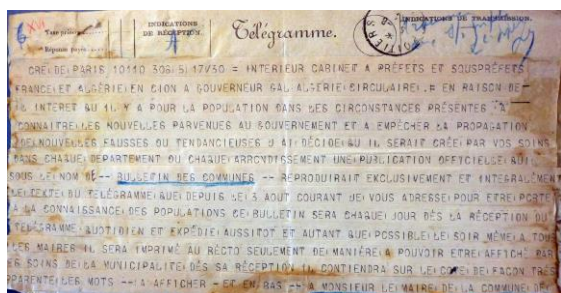 XVI
INDICATIONS
DE RÉCEPTION.
Télégramme.
INDICATIONS DE TRANSMISSION.
Taxe
Réponse payée
POITIERS
CRE DE PARIS 10110 306 5 17/30 = INTERIEUR CABINET A PREFETS ET SOUSPREFETS
FRANCE ET ALGERIE EN CION A GOUVERNEUR GAL ALGERIE CIRCULAIRE . EN RAISON DE
L INTERET QU IL Y A POUR LA POPULATION DANS LES CIRCONSTANCES PRESENTES A
CONNAITRE LES NOUVELLES PARVENUES AU GOUVERNEMENT ET A EMPECHER LA PROPAGATION
DE NOUVELLES FAUSSES OU TENDANCIEUSES J AI DECIDE QU IL SERAIT CREE PAR VOS SOINS
DANS CHAQUE DEPARTEMENT OU CHAQUE ARRONDISSEMENT UNE PUBLICATION OFFICIELLE QUI
SOUS LE NOM DE -- BULLETIN DES COMMUNES -- REPRODUIRAIT EXCLUSIVEMENT ET INTEGRALEMENT
LE TEXTE DU TELEGRAMME QUE DEPUIS LE 3 AOUT COURANT JE VOUS ADRESSE POUR ETRE PORTE
A LA CONNAISSANCE DES POPULATIONS CE BULLETIN SERA CHAQUE JOUR DES LA RECEPTION DU
TELEGRAMME QUOTIDIEN ET EXPEDIE AUSSITOT ET AUTANT QUE POSSIBLE LE SOIR MEME A TOUS
LES MAIRES IL SERA IMPRIME AU RECTO SEULEMENT DE MANIERE A POUVOIR ETRE AFFICHE PAR
LES SOINS DE LA MUNICIPALITE DES SA RECEPTION IL CONTIENDRA SUR LE COTE DE FACON TRES
APPARENTE LES MOTS -- A AFFICHER - ET EN BAS -- A MONSIEUR LE MAIRE DE LA COMMUNE DE